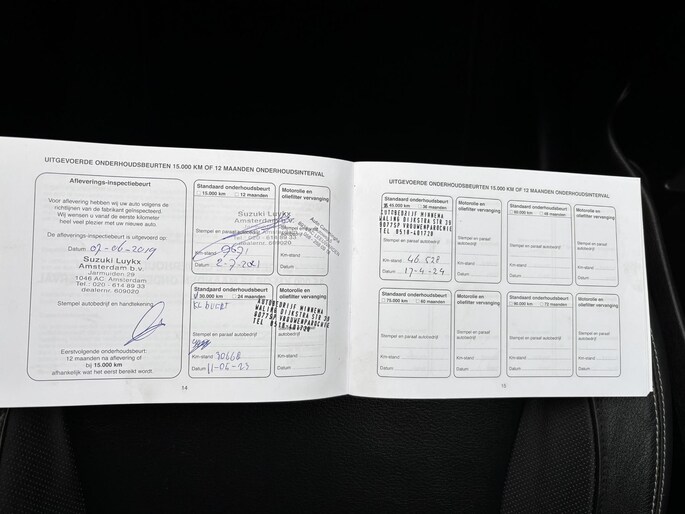 UITGEVOERDE ONDERHOUDSBEURTEN 15.000 KM OF 12 MAANDEN ONDERHOUDSINTERVAL
Afleverings-inspectiebeurt
Voor aflevering hebben wij uw auto volgens de
richtlijnen van de fabrikant geïnspecteerd.
Wij wensen u vanaf de eerste kilometer
heel veel plezier met uw nieuwe auto.
De afleverings-inspectiebeurt is uitgevoerd op:
Datum: 07-06-2019
Suzuki Luykx
Amsterdam b.v.
Jarmuiden 29
1046 AC Amsterdam
Tel.: 020 - 614 89 33
dealernr. 609020
Stempel autobedrijf en handtekening
Eerstvolgende onderhoudsbeurt:
12 maanden na aflevering of
bij 15.000 km
afhankelijk wat het eerst bereikt wordt.
Standaard onderhoudsbeurt
15.000 km 12 maanden
Suzuki Luykx
Amsterdam b.v.
Stempel en paraaf autobedrijf
dealernr. 609020
Km-stand
Datum 2-7-2021
Motorolie en
oliefilter vervanging
Km-stand
Datum
Standaard onderhoudsbeurt
30.000 km 24 maanden
AUTOBEDRIJF MINNEMA
WALING DIJKSTRA STR 38
9077SP VROUWENPAROCHIE
TEL 0518-401720
Stempel en paraaf autobedrijf
Km-stand 30668
Datum 11-06-23
Motorolie en
oliefilter vervanging
Km-stand
Datum
14
UITGEVOERDE ONDERHOUDSBEURTEN 15.000 KM OF 12 MAANDEN ONDERHOUDSINTERVAL
Standaard onderhoudsbeurt
45.000 km 36 maanden
AUTOBEDRIJF MINNEMA
WALING DIJKSTRA STR 38
9077SP VROUWENPAROCHIE
TEL 0518-401720
Stempel en paraaf autobedrijf
Km-stand 46.528
Datum 17-4-24
Motorolie en
oliefilter vervanging
Km-stand
Datum
Standaard onderhoudsbeurt
60.000 km 48 maanden
Stempel en paraaf autobedrijf
Km-stand
Datum
Motorolie en
oliefilter vervanging
Km-stand
Datum
Standaard onderhoudsbeurt
75.000 km 60 maanden
Stempel en paraaf autobedrijf
Km-stand
Datum
Motorolie en
oliefilter vervanging
Km-stand
Datum
Standaard onderhoudsbeurt
90.000 km 72 maanden
Stempel en paraaf autobedrijf
Km-stand
Datum
Motorolie en
oliefilter vervanging
Km-stand
Datum
15